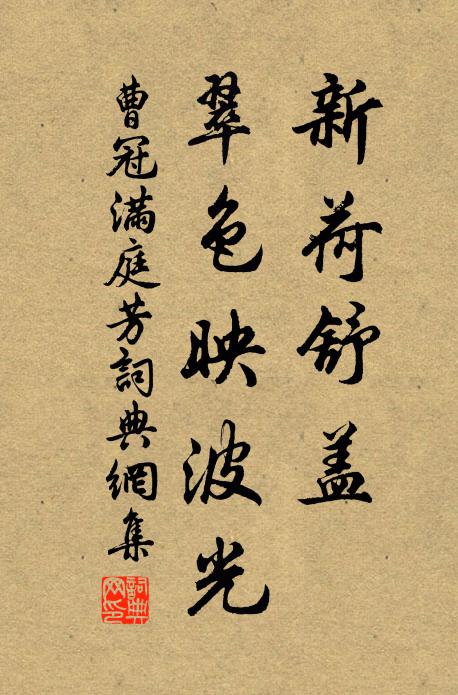 新荷舒盖
翠色映波光
曹冠满庭芳詞典網集
詞典网印